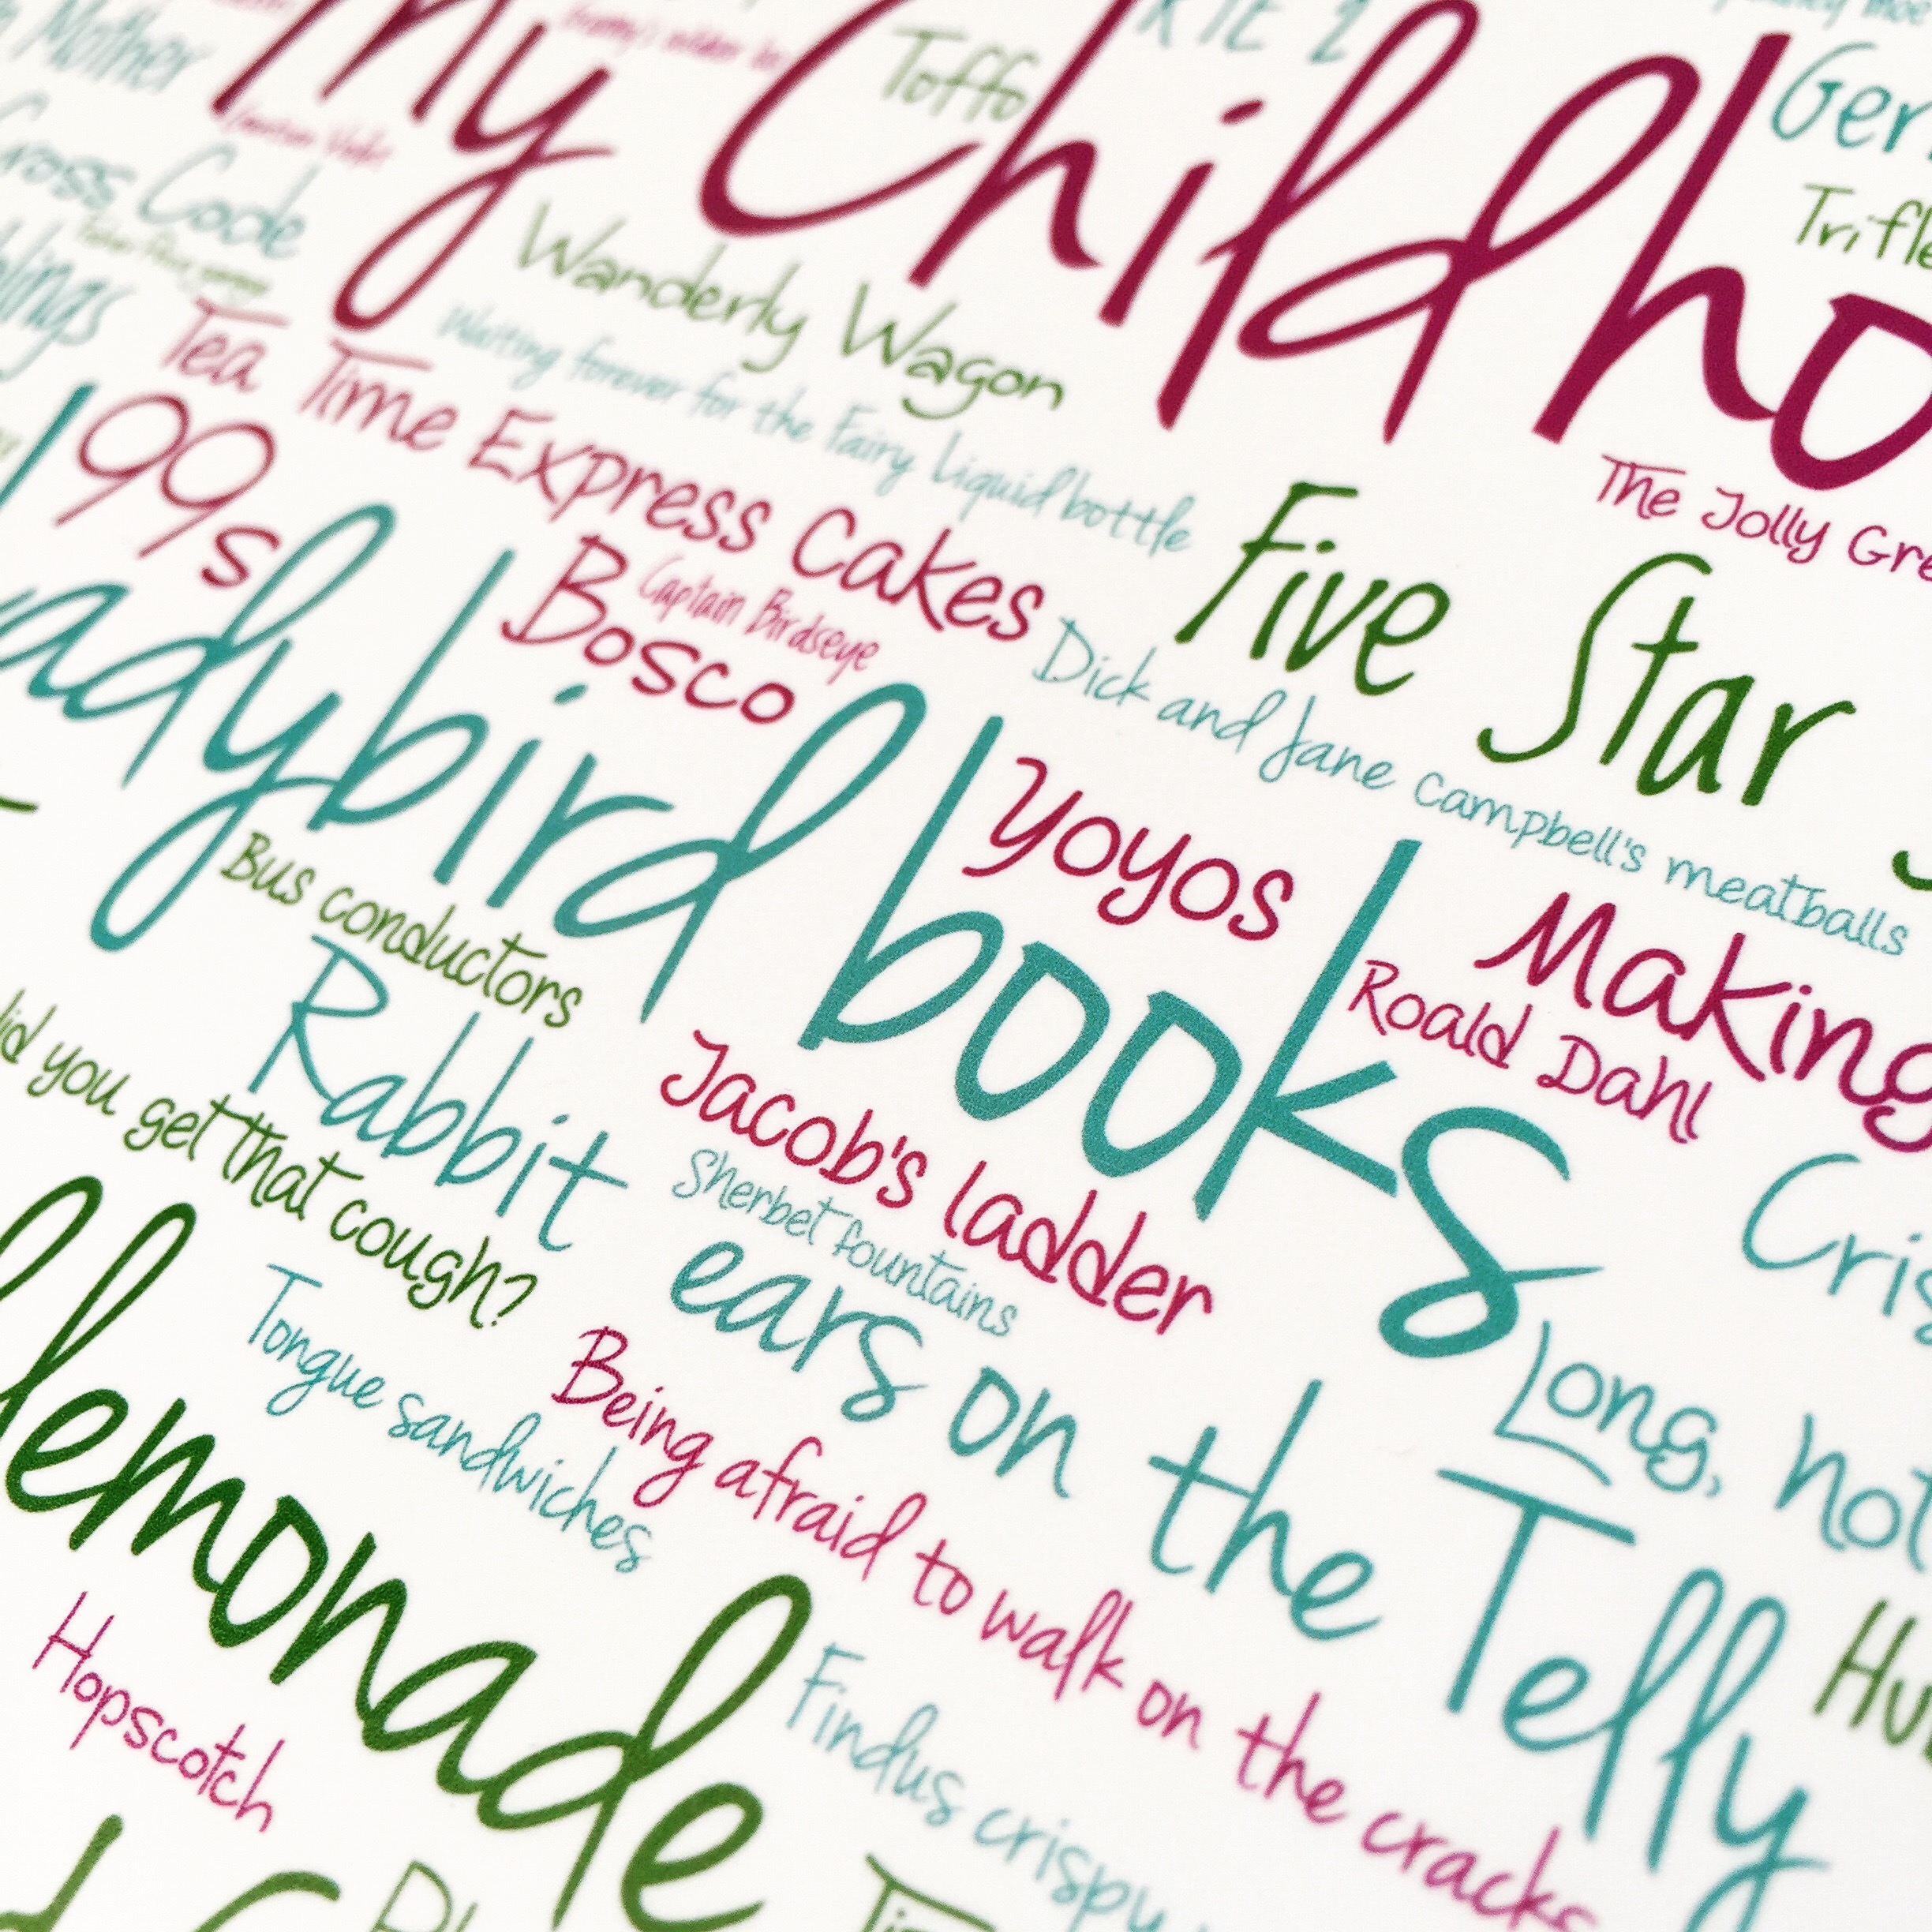 RTE 2
Mother
My Childho
Toffo
Ger
Cross Code
Trifle
Wanderly Wagon
Tea Time Express Cakes
Waiting forever for the Fairy Liquid bottle
The Jolly Gre
99s
Five Star
Captain Birdseye
Bosco
Dick and Jane Campbell's meatballs
adybird books
Yoyos
Making
Roald Dahl
Bus conductors
did you get that cough?
Rabbit ears on the Telly
Jacob's ladder
Sherbet fountains
Cris
Long, not
lemonade
Tongue sandwiches
Being afraid to walk on the cracks
Hopscotch
Findus crispy
Hu